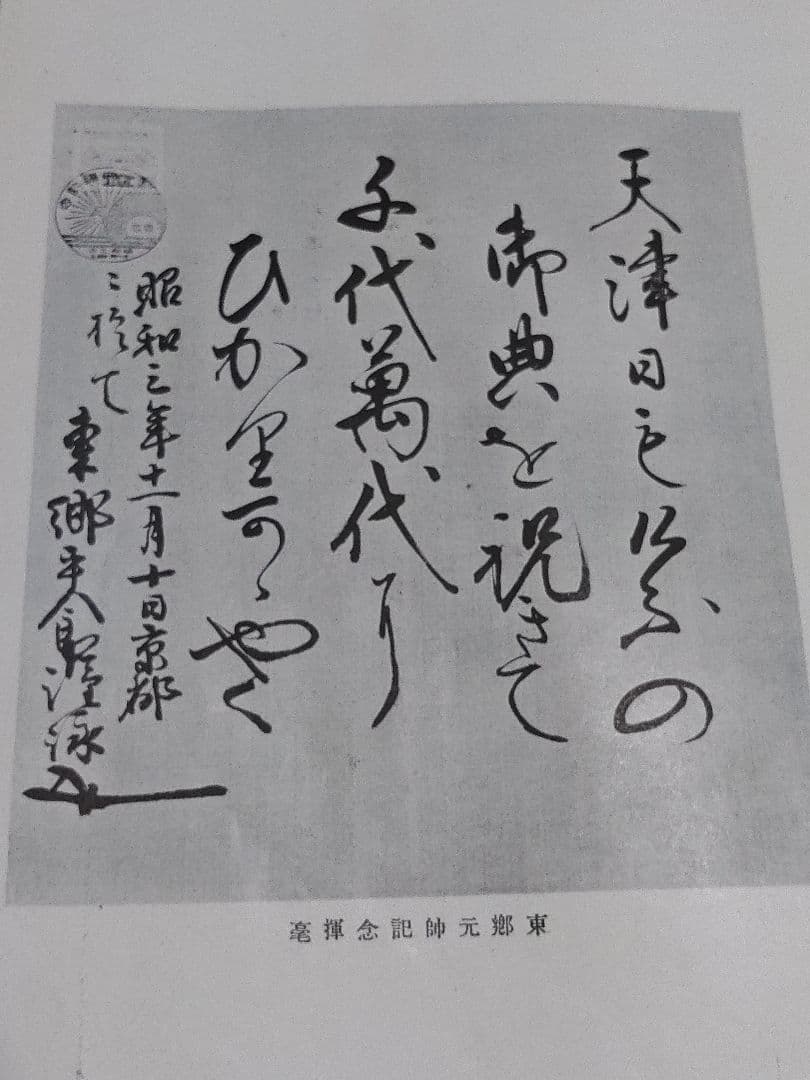 天津日もけふの
御典を祝きて
千代萬代に
ひか里可ゝやく
昭和三年十一月十日京都
ニ於て
東郷平八郎謹詠
東鄉元帥記念揮毫